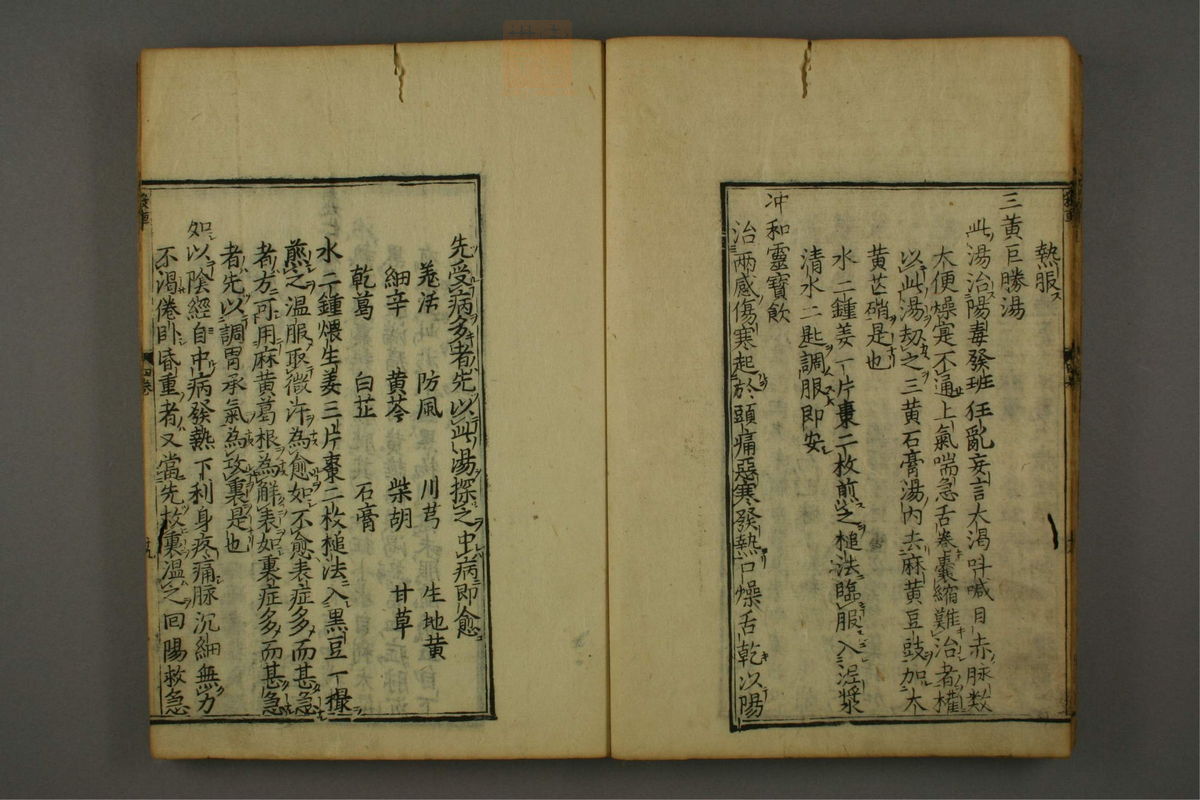 熱服ス
三黄巨勝湯
此湯治陽毒發斑狂亂妄言大渇呌喊目赤脉数
大便燥実不通上氣喘急舌巻嚢縮難治者權
以此湯刼之三黄石膏湯内去麻黄豆豉加大
黄芒硝是也
水二鍾姜一片棗二枚煎之槌法臨服入泥漿
清水二匙調服即安
冲和靈寳飲
治兩感傷寒起於頭痛惡寒發熱口燥舌乾以陽
先受病多者先以此湯探之中病即愈
羗活 防風 川芎 生地黄
細辛 黄芩 柴胡 甘草
乾葛 白芷 石膏
水二鍾煨生姜三片棗二枚槌法入黒豆一撮
煎之温服取微汗為愈如不愈表症多而甚急
者方可用麻黄葛根為解表如裏症多而甚急
者先以調胃承氣為攻裏是也
如以陰經自中病發熱下利身疼痛脉沉細無力
不渇倦卧昏重者又當先救裏温之回陽救急
四巻